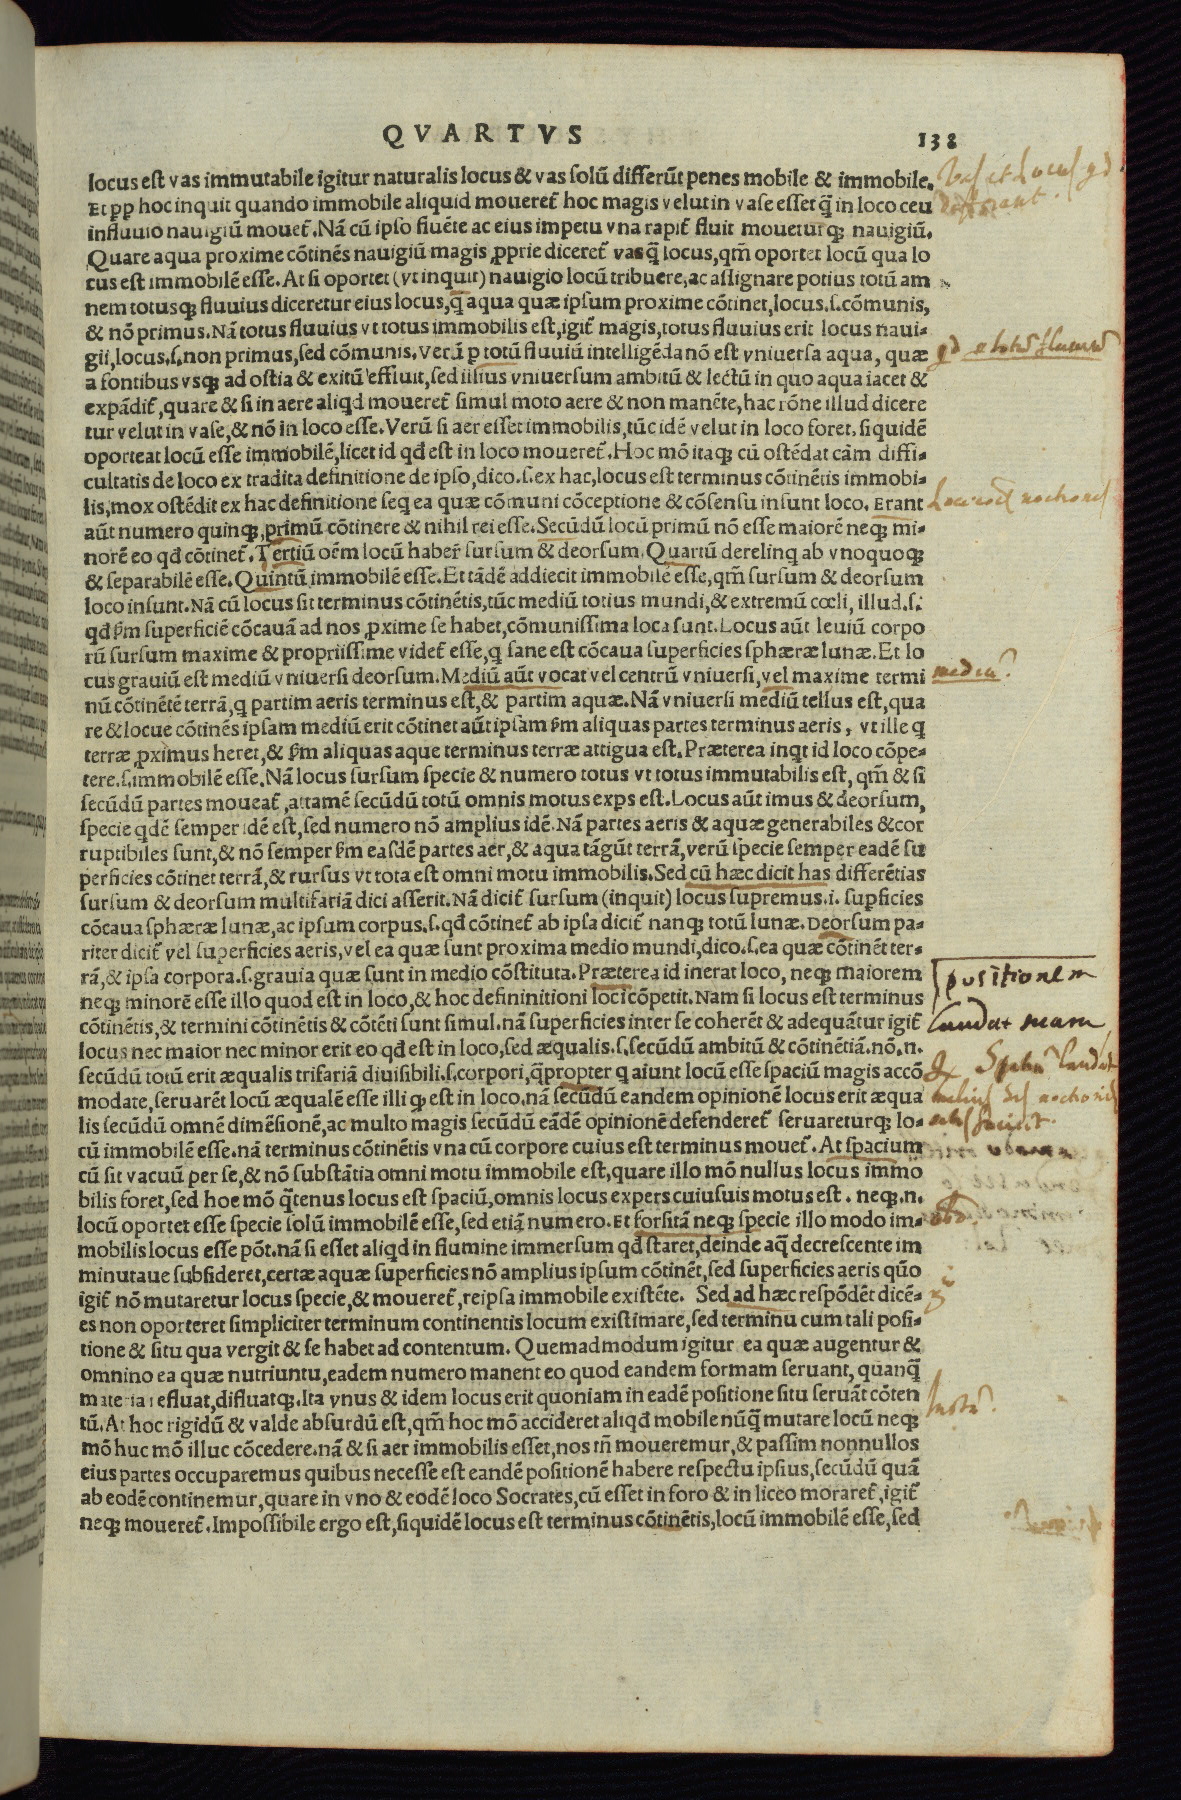 QVARTVS 138
locus est vas immutabile igitur naturalis locus & vas solũ differũt penes mobile & immobile.
Et pp hoc inquit quando immobile aliquid moueret᷑ hoc magis velut in vase esset q̃ in loco ceu
in fluuio nauigiũ mouet᷑. Nã cũ ipso fluẽte ac eius impetu vna rapit᷑ fluit moueturq; nauigiũ.
Quare aqua proxime cõtinẽs nauigiũ magis ꝓprie diceret᷑ vas q̃ locus, qm̃ oportet locũ qua lo
cus est immobilẽ esse. At si oportet (vt inquit) nauigio locũ tribuere, ac assignare potius totũ am
nem totusq; fluuius diceretur eius locus, q̃ aqua quæ ipsum proxime cõtinet, locus.s.cõmunis,
& nõ primus. Nã totus fluuius vt totus immobilis est, igit᷑ magis, totus fluuius erit locus naui-
gii, locus.s.non primus, sed cõmunis. Verũ p totũ fluuiũ intelligẽda nõ est vniuersa aqua, quæ
a fontibus vsq; ad ostia & exitũ effluit, sed illius vniuersum ambitũ & lectũ in quo aqua iacet &
expãdit᷑, quare & si in aere aliqd moueret᷑ simul moto aere & non manẽte, hac rõne illud dicere
tur velut in vase, & nõ in loco esse. Verũ si aer esset immobilis, tũc idẽ velut in loco foret. siquidẽ
oporteat locũ esse immobilẽ, licet id qđ est in loco moueret᷑. Hoc mõ itaq; cũ ostẽdat cãm diffi-
cultatis de loco ex tradita definitione de ipso, dico.s.ex hac, locus est terminus cõtinẽtis immobi-
lis, mox ostẽdit ex hac definitione seq ea quæ cõmuni cõceptione & cõsensu insunt loco. Erant
aũt numero quinq;, primũ cõtinere & nihil rei esse. Secũdũ locũ primũ nõ esse maiorẽ neq; mi-
norẽ eo qđ cõtinet᷑. Tertiũ oẽm locũ haber̃ sursum & deorsum. Quartũ derelinq ab vnoquoq;
& separabilẽ esse. Quintũ immobilẽ esse. Et tãdẽ addiecit immobilẽ esse, qm̃ sursum & deorsum
loco insunt. Nã cũ locus sit terminus cõtinẽtis, tũc mediũ totius mundi, & extremũ cœli, illud.s.
qđ ẜm superficiẽ cõcauã ad nos ꝓxime se habet, cõmunissima loca sunt. Locus aũt leuiũ corpo
rũ sursum maxime & propriissime videt᷑ esse, q sane est cõcaua superficies sphæræ lunæ. Et lo
cus grauiũ est mediũ vniuersi deorsum. Mediũ aũt vocat vel centrũ vniuersi, vel maxime termi
nũ cõtinẽtẽ terrã, q partim aeris terminus est, & partim aquæ. Nã vniuersi mediũ tellus est, qua
re & locus cõtinẽs ipsam mediũ erit cõtinet aũt ipsam ẜm aliquas partes terminus aeris, vt ille q
terræ ꝓximus heret, & ẜm aliquas aque terminus terræ attigua est. Præterea inqt id loco cõpe-
tere.s.immobilẽ esse. Nã locus sursum specie & numero totus vt totus immutabilis est, qm̃ & si
secũdũ partes moueat᷑, attamẽ secũdũ totũ omnis motus exps est. Locus aũt imus & deorsum,
specie qdẽ semper idẽ est, sed numero nõ amplius idẽ. Nã partes aeris & aquæ generabiles & cor
ruptibiles sunt, & nõ semper ẜm easdẽ partes aer, & aqua tãgũt terrã, verũ specie semper eadẽ su
perficies cõtinet terrã, & rursus vt tota est omni motu immobilis. Sed cũ hæc dicit has differẽtias
sursum & deorsum multifariã dici asserit. Nã dicit᷑ sursum (inquit) locus supremus.i. supficies
cõcaua sphæræ lunæ, ac ipsum corpus.s.qđ cõtinet᷑ ab ipsa dicit᷑ nanq; totũ lunæ. Deorsum pa-
riter dicit᷑ vel superficies aeris, vel ea quæ sunt proxima medio mundi, dico.s.ea quæ cõtinẽt ter-
rã, & ipsa corpora.s.grauia quæ sunt in medio cõstituta. Præterea id inerat loco, neq; maiorem
neq; minorẽ esse illo quod est in loco, & hoc defininitioni loci cõpetit. Nam si locus est terminus
cõtinẽtis, & termini cõtinẽtis & cõtẽti sunt simul. nã superficies inter se coherẽt & adequãtur igit᷑
locus nec maior nec minor erit eo qđ est in loco, sed æqualis.s.secũdũ ambitũ & cõtinẽtiã. nõ.n.
secũdũ totũ erit æqualis trifariã diuisibili.s.corpori, q̃propter q aiunt locũ esse spaciũ magis accõ
modate, seruarẽt locũ æqualẽ esse illi qđ est in loco. nã secũdũ eandem opinionẽ locus erit æqua
lis secũdũ omnẽ dimẽsionẽ, ac multo magis secũdũ eãdẽ opinionẽ defenderet᷑ seruareturq; lo-
cũ immobilẽ esse. nã terminus cõtinẽtis vna cũ corpore cuius est terminus mouet᷑. At spacium
cũ sit vacuũ per se, & nõ substãtia omni motu immobile est, quare illo mõ nullus locus immo
bilis foret, sed hoe mõ q̃tenus locus est spaciũ, omnis locus expers cuiusuis motus est. neq;.n.
locũ oportet esse specie solũ immobilẽ esse, sed etiã numero. Et forsitã neq; specie illo modo im-
mobilis locus esse põt. nã si esset aliqd in flumine immersum qđ staret, deinde aq̃ decrescente im
minutaue subsideret, certæ aquæ superficies nõ amplius ipsum cõtinẽt, sed superficies aeris quõ
igit᷑ nõ mutaretur locus specie, & moueret᷑, reipsa immobile existẽte. Sed ad hæc respõdẽt dicẽ-
es non oporteret simpliciter terminum continentis locum existimare, sed terminu cum tali posi-
tione & situ qua vergit & se habet ad contentum. Quemadmodum igitur ea quæ augentur &
omnino ea quæ nutriuntu, eadem numero manent eo quod eandem formam seruant, quanq̃
materia refluat, difluatq;. Ita vnus & idem locus erit quoniam in eadẽ positione situ seruãt cõten
tũ. At hoc rigidũ & valde absurdũ est, qm̃ hoc mõ accideret aliqd mobile nũq̃ mutare locũ neq;
mõ huc mõ illuc cõcedere. nã & si aer immobilis esset, nos tñ moueremur, & passim nonnullos
eius partes occuparemus quibus necesse est eandẽ positionẽ habere respectu ipsius, secũdũ quã
ab eodẽ continemur, quare in vno & eodẽ loco Socrates, cũ esset in foro & in liceo moraret᷑, igit᷑
neq; moueret᷑. Impossibile ergo est, siquidẽ locus est terminus cõtinẽtis, locũ immobilẽ esse, sed
positionem